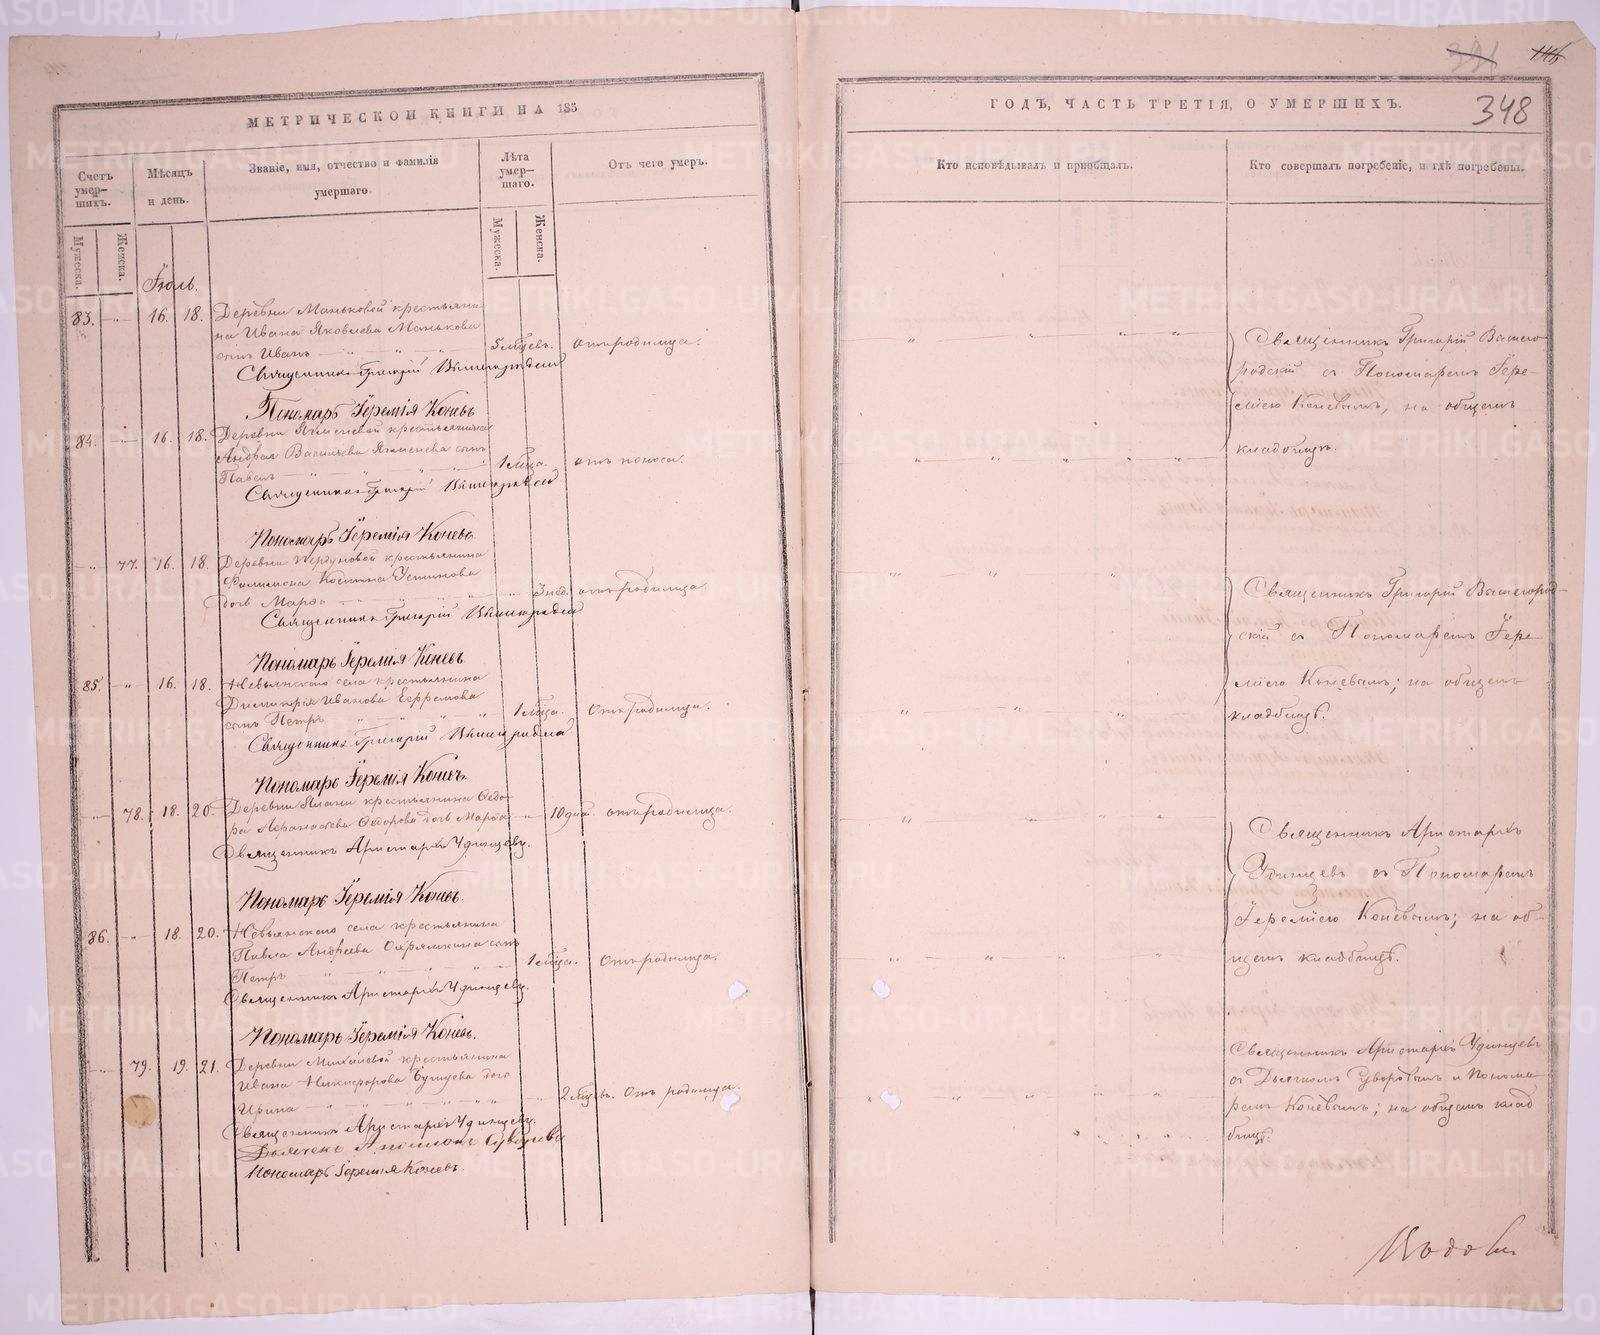 МЕТРИЧЕСКОИ КНИГИ НА 185
Счетъ умер-
шихъ.
Мѣсяцъ
и день.
Званіе, имя, отчество и фамилія
умершаго.
Лѣта
умер-
шаго.
Отъ чего умеръ.
Мужеска.
Женска.
Мужеска.
Женска.
Іюль.
83. 16. 18. Деревни Маньковой крестьяни-
на Ивана Яковлева Манькова
сынъ Иванъ 5 мѣсяцевъ. отъ родимца.
Священникъ Григорій Вышегородскій
Пономарь Іеремія Коневъ
84. 16. 18. Деревни крестьянина
Андрея Васильева сынъ
Павелъ 1 мѣсяца. отъ поноса.
Священникъ Григорій Вышегородскій
Пономарь Іеремія Коневъ.
77. 16. 18. Деревни крестьянина
Филимона Косьмина Устинова
дочь Марѳа 3 нед. отъ родимца.
Священникъ Григорій Вышегородскій
Пономарь Іеремія Коневъ
85. 16. 18. Невьянскаго села крестьянина
Димитрія Иванова Ефремова
сынъ Петръ 1 мѣсяца. Отъ родимца.
Священникъ Григорій Вышегородскій
Пономарь Іеремія Коневъ
78. 18. 20. Деревни Ялани крестьянина Ѳедо-
ра Аѳанасьева Ѳедорова дочь Марѳа 10 дней. отъ родимца.
Священникъ Аристархъ Удинцевъ.
Пономарь Іеремія Коневъ.
86. 18. 20. Невьянскаго села крестьянина
Павла Андреева Охрямкина сынъ
Петръ 1 мѣсяца. Отъ родимца.
Священникъ Аристархъ Удинцевъ.
Пономарь Іеремія Коневъ.
79. 19. 21. Деревни Михалевой крестьянина
Ивана Никифорова дочь
Ирина 2 мѣсяцевъ. Отъ родимца.
Священникъ Аристархъ Удинцевъ.
Дьячекъ Суворовъ
Пономарь Іеремія Коневъ.
ГОДЪ, ЧАСТЬ ТРЕТІЯ, О УМЕРШИХЪ.
348
Кто исповѣдывалъ и пріобщалъ.
Кто совершалъ погребеніе, и гдѣ погребены.
Священникъ Григорій Вышего-
родскій съ Пономаремъ Іере-
міею Коневымъ, на общемъ
кладбищѣ.
Священникъ Григорій Вышегород-
скій съ Пономаремъ Іере-
міею Коневымъ; на общемъ
кладбищѣ.
Священникъ Аристархъ
Удинцевъ съ Пономаремъ
Іереміею Коневымъ; на об-
щемъ кладбищѣ.
Священникъ Аристархъ Удинцевъ
съ Дьячкомъ Суворовымъ и Понома-
ремъ Коневымъ; на общемъ клад-
бищѣ.
METRIKI.GASO-URAL.RU